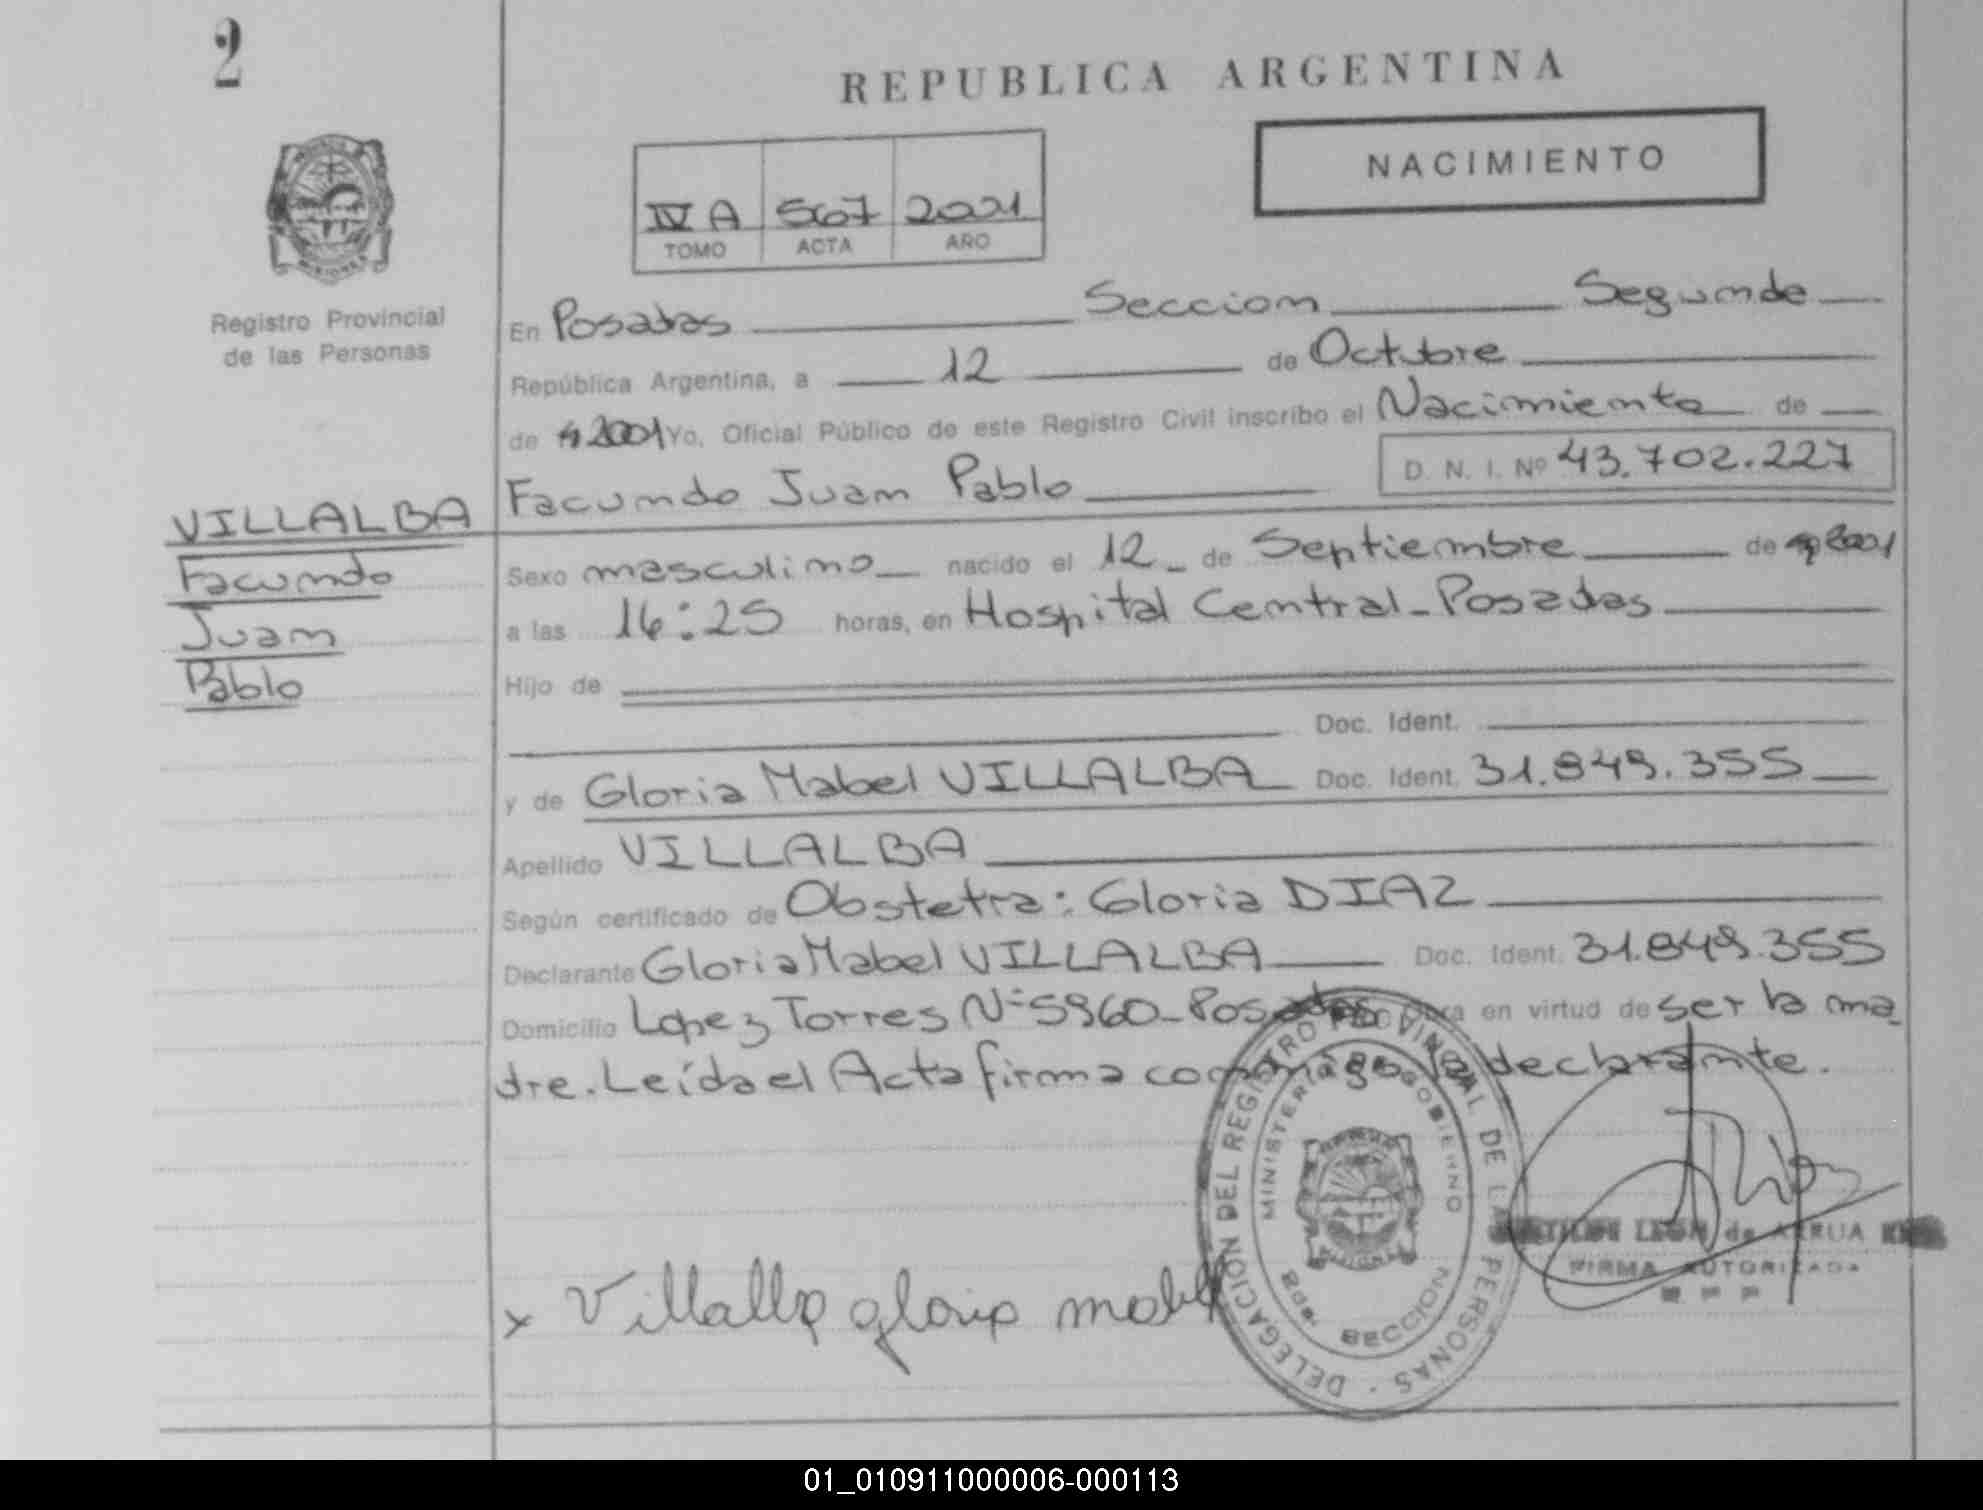 2
REPUBLICA ARGENTINA
NACIMIENTO
IV A 567 2001
TOMO ACTA AÑO
MISIONES
Registro Provincial
de las Personas
En Posadas Seccion Segunda
República Argentina, a 12 de Octubre
de 2001 Yo, Oficial Público de este Registro Civil inscribo el Nacimiento de
D. N. I. Nº 43.702.227
Facundo Juan Pablo
VILLALBA
Facundo
Juan
Pablo
Sexo masculino nacido el 12 de Septiembre de 2001
a las 16:25 horas, en Hospital Central - Posadas
Hijo de
Doc. Ident.
y de Gloria Mabel VILLALBA Doc. Ident. 31.849.355
Apellido VILLALBA
Según certificado de Obstetra: Gloria DIAZ
Declarante Gloria Mabel VILLALBA Doc. Ident. 31.849.355
Domicilio Lopez Torres Nº 5960 - Posadas en virtud de ser la ma
dre. Leída el Acta firma conmigo la declarante.
DELEGACION DEL REGISTRO PROVINCIAL DE LAS PERSONAS
MINISTERIO DE GOBIERNO
SECCION
LEON de ARRUA
FIRMA AUTORIZADA
x Villalba gloria mabel
01_010911000006-000113